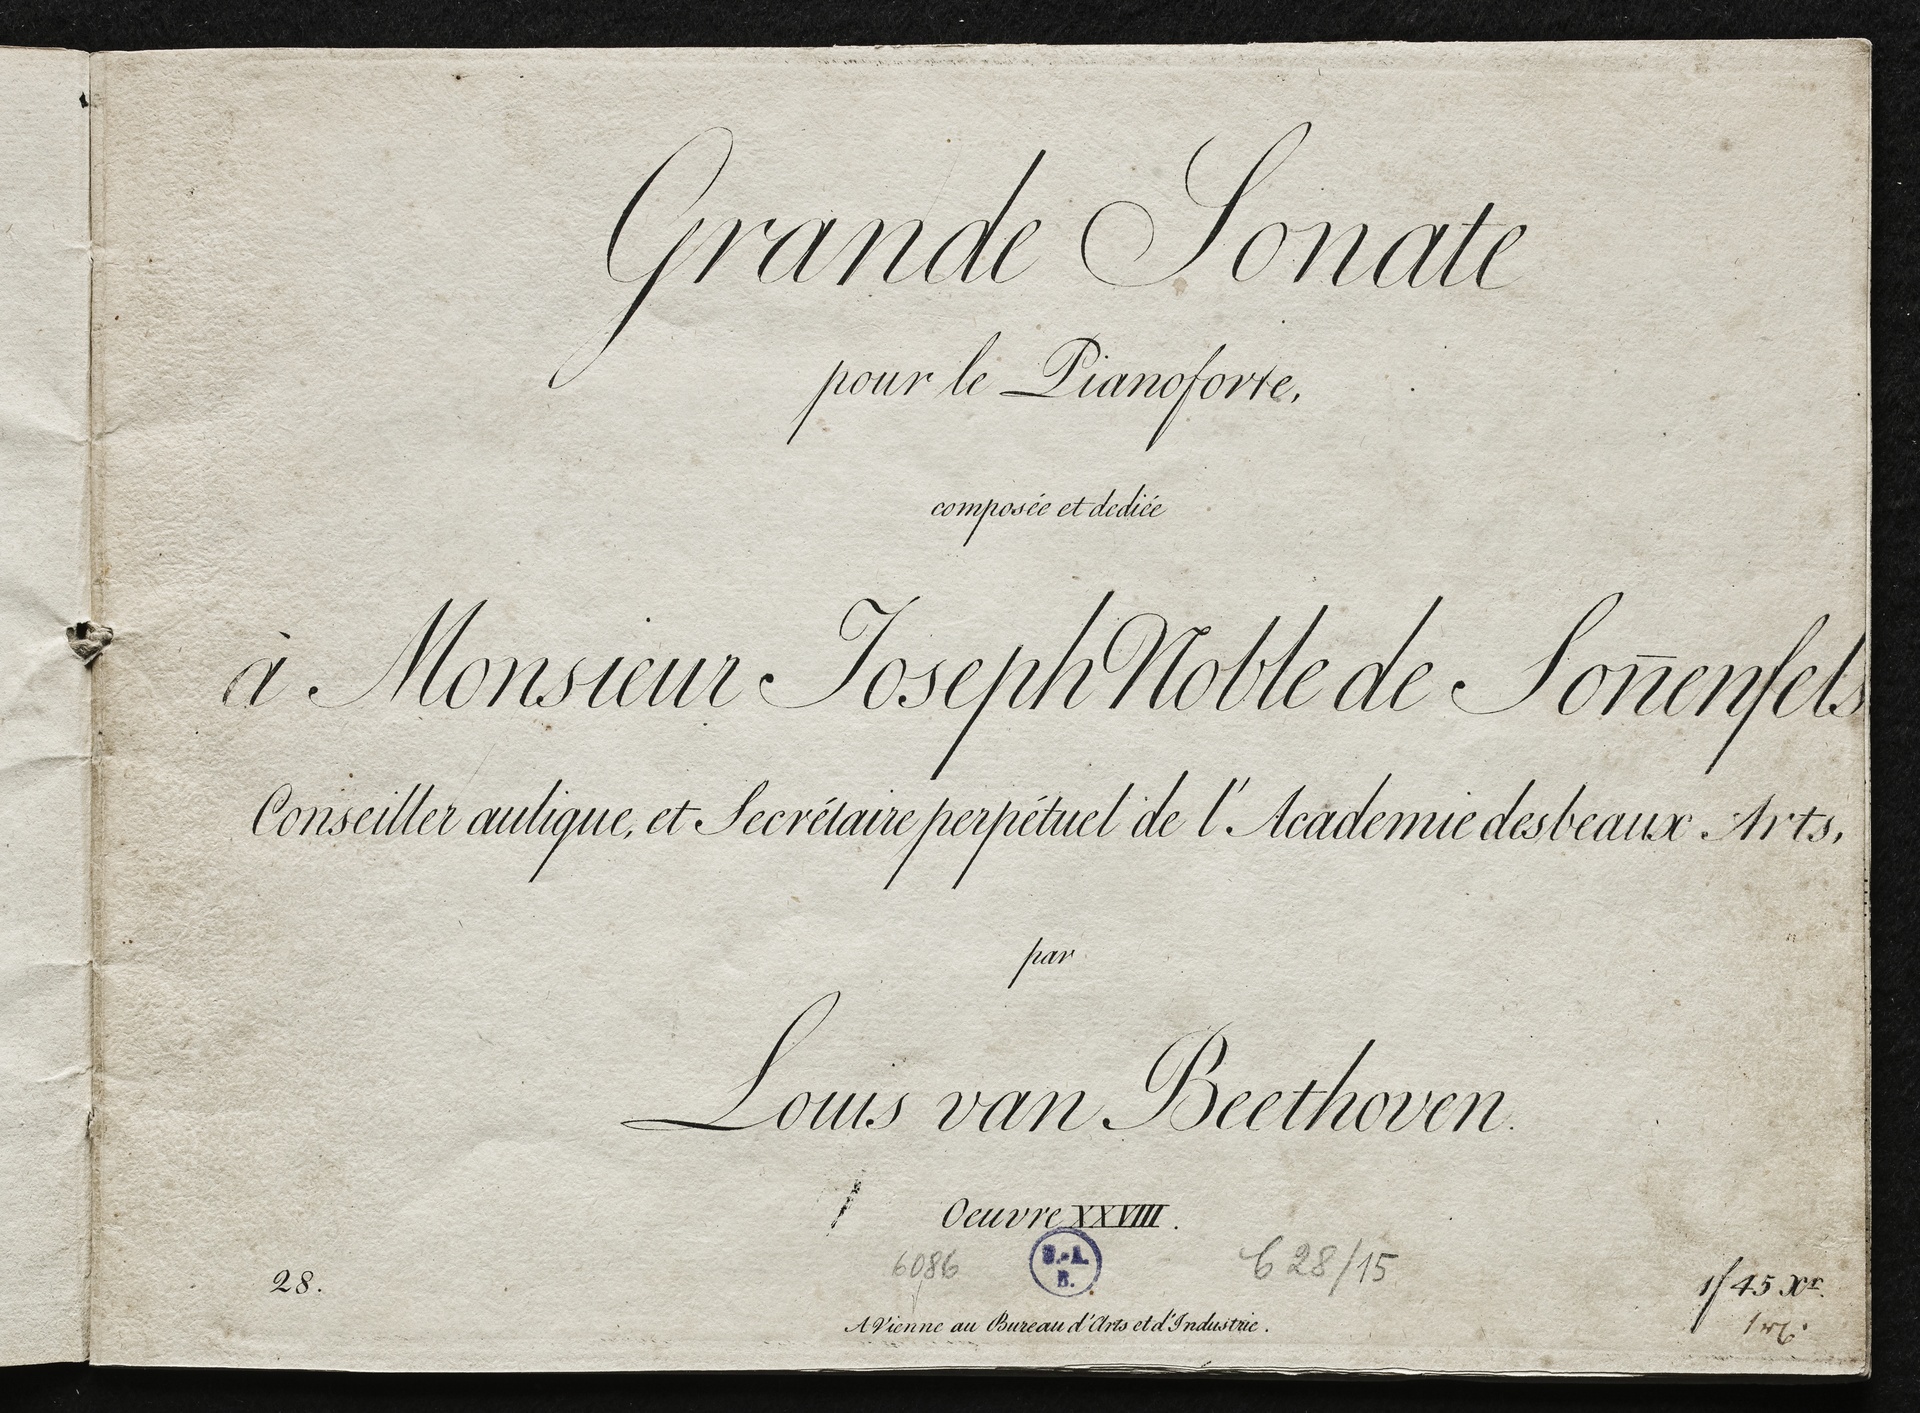 Grande Sonate
pour le Pianoforte,
composée et dediée
à Monsieur Joseph Noble de Soñenfels
Conseiller aulique, et Secrétaire perpétuel de l'Academie des beaux Arts,
par
Louis van Beethoven.
Oeuvre XXVIII.
6086
B.-A.
B.
C 28/15
28.
1f 45 Xr.
A Vienne au Bureau d'Arts et d'Industrie.